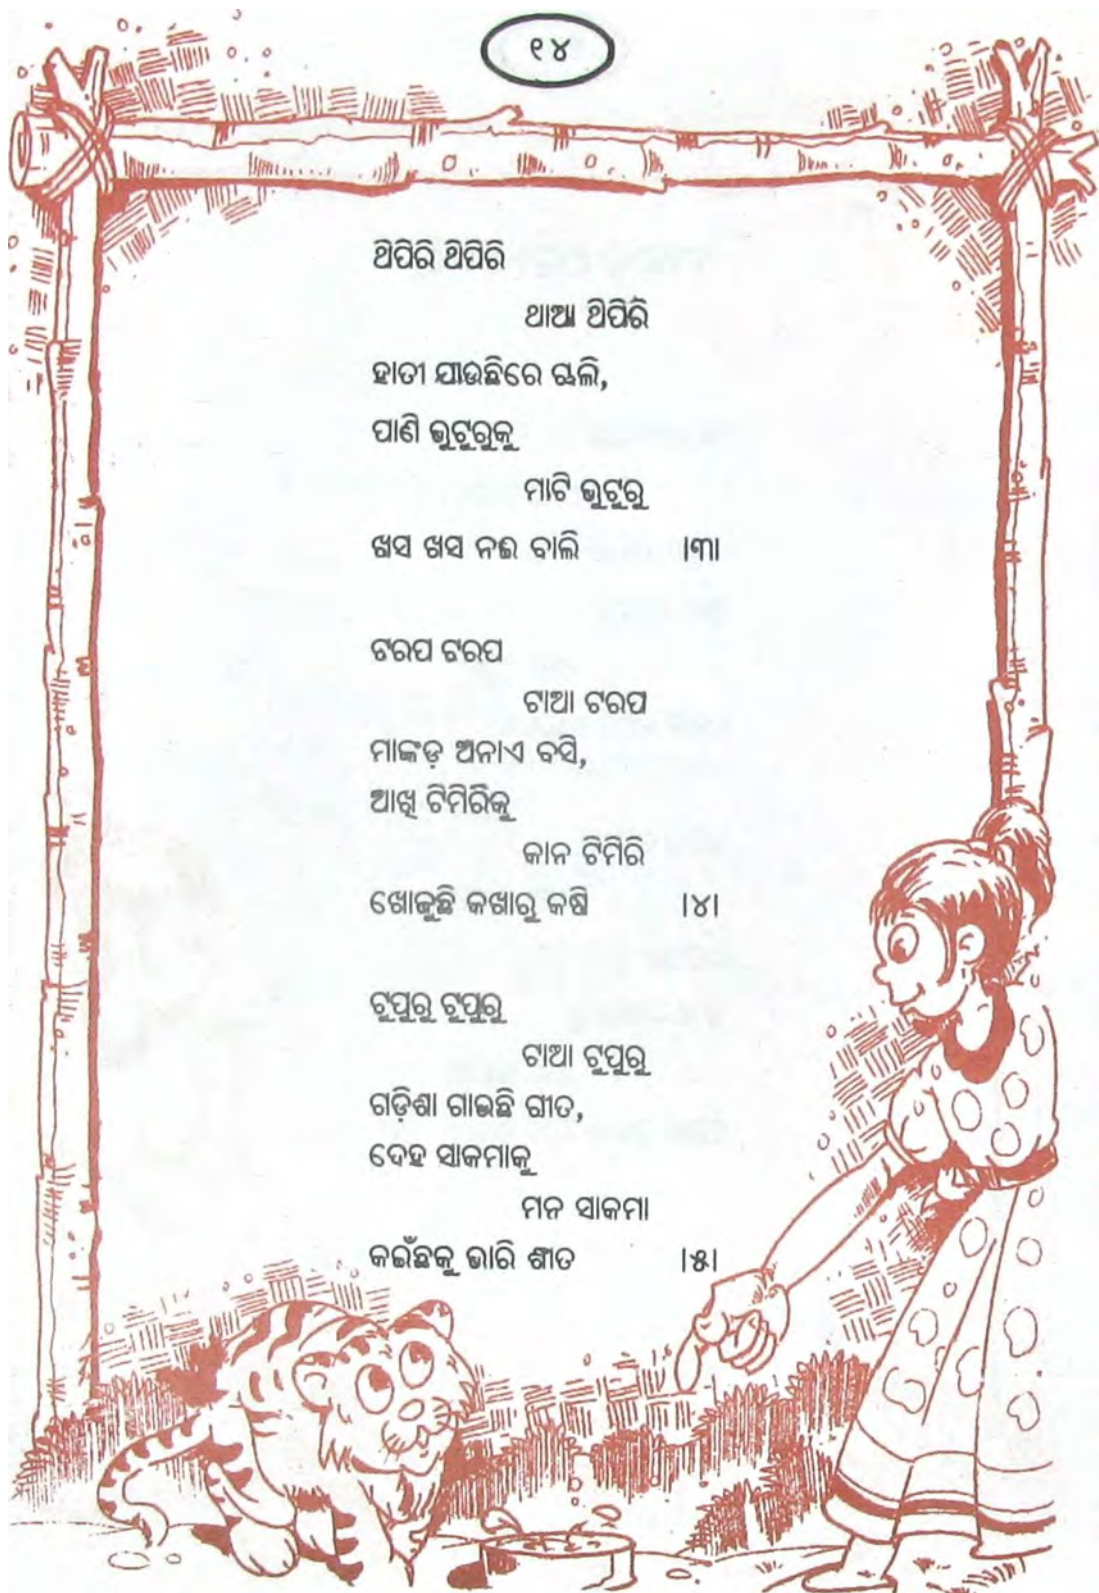 ୧୪
ଥିପିରି ଥିପିରି
ଥାଆ ଥିପିରି
ହାତୀ ଯାଉଛିରେ ଚାଲି,
ପାଣି ଭୁଟୁରୁକୁ
ମାଟି ଭୁଟୁରୁ
ଖସ ଖସ ନଈ ବାଲି ।୩।
ଟରପ ଟରପ
ଟାଆ ଟରପ
ମାଙ୍କଡ଼ ଅନାଏ ବସି,
ଆଖି ଟିମିରିକୁ
କାନ ଟିମିରି
ଖୋଜୁଛି କଖାରୁ କଷି ।୪।
ଟୁପୁରୁ ଟୁପୁରୁ
ଟାଆ ଟୁପୁରୁ
ଗଡ଼ିଶା ଗାଉଛି ଗୀତ,
ଦେହ ସାକମାକୁ
ମନ ସାକମା
କଇଁଛକୁ ଭାରି ଶୀତ ।୫।